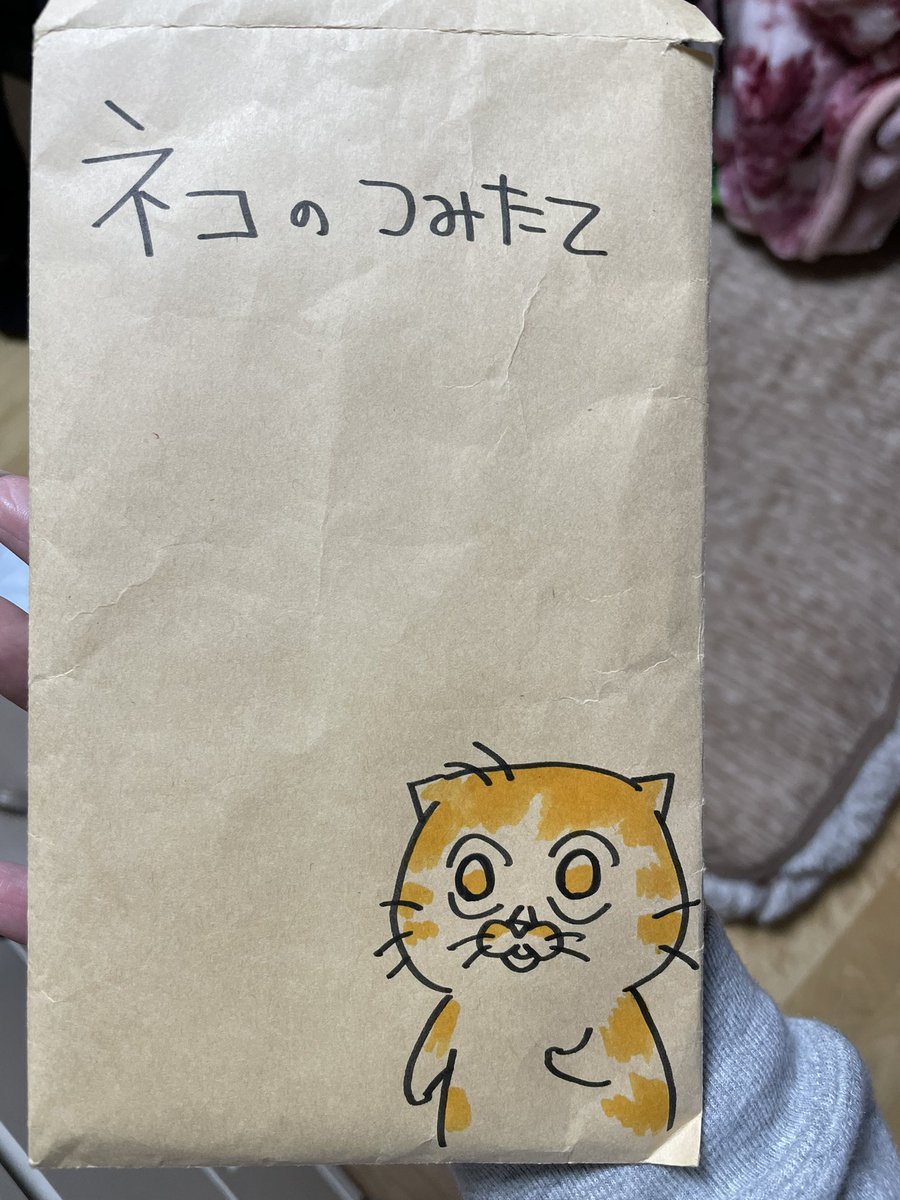 ネコのつみたて